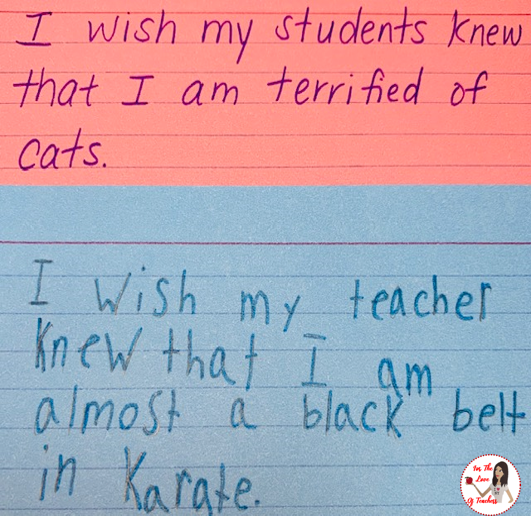 I wish my students knew
that I am terrified of
cats.
I wish my teacher
knew that I am
almost a black belt
in Karate.
For The
Love
Of Teachers